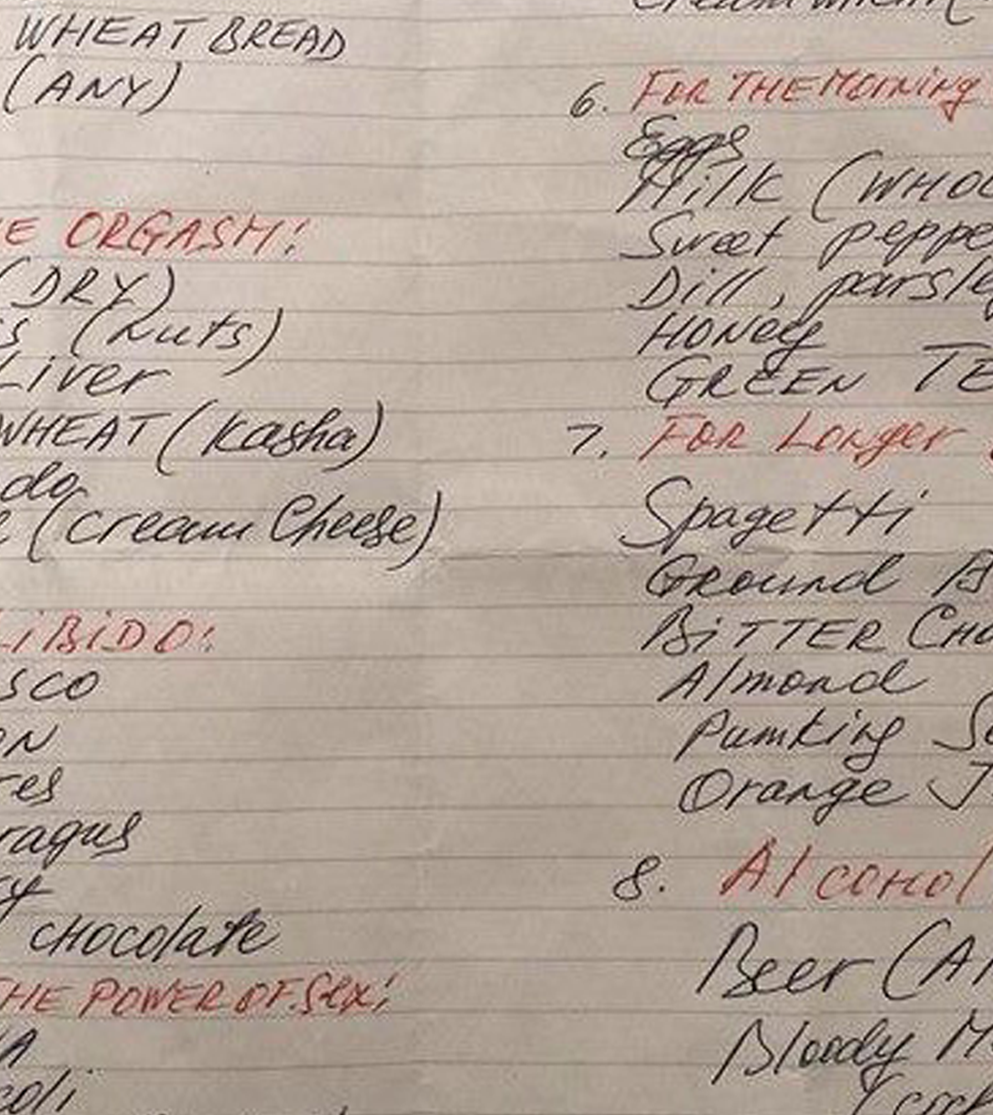 WHEAT BREAD
(ANY)
ORGASM!
(DRY)
(Nuts)
Liver
WHEAT (Kasha)
do
(Cream Cheese)
LiBiDO:
sco
ON
res
ragus
ry
CHOCOLATE
THE POWER OF Sex!
A
coli
6. FOR THE MORNiNg
Eggs
Milk (WHO
Sweet peppe
Dill, parsle
HONEY
GREEN TE
7. FOR Longer
Spagetti
Ground B
BiTTER CHO
Almond
Pumking Se
Orange J
8. Alcohol
Beer (A
Bloody M
(cock